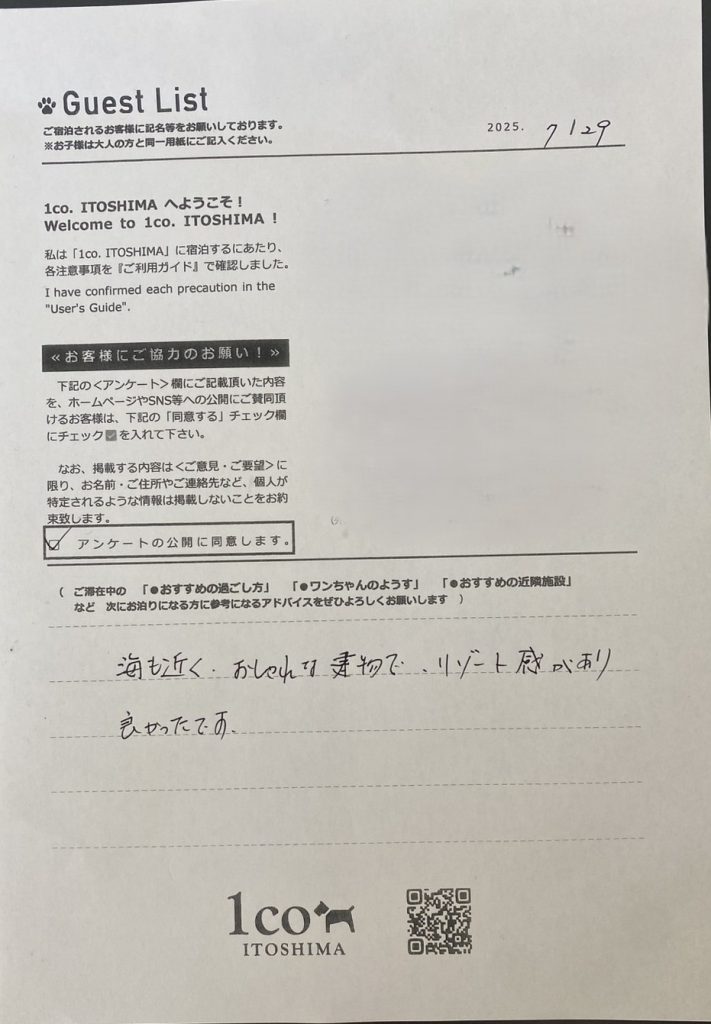 Guest List
ご宿泊されるお客様に記名等をお願いしております。
※お子様は大人の方と同一用紙にご記入ください。
2025. 7/29
1co. ITOSHIMA へようこそ！
Welcome to 1co. ITOSHIMA !
私は「1co. ITOSHIMA」に宿泊するにあたり、
各注意事項を『ご利用ガイド』で確認しました。
I have confirmed each precaution in the
"User's Guide".
≪お客様にご協力のお願い！≫
下記の＜アンケート＞欄にご記載頂いた内容
を、ホームページやSNS等への公開にご賛同頂
けるお客様は、下記の「同意する」チェック欄
にチェック☑を入れて下さい。
なお、掲載する内容は＜ご意見・ご要望＞に
限り、お名前・ご住所やご連絡先など、個人が
特定されるような情報は掲載しないことをお約
束致します。
☑ アンケートの公開に同意します。
（ ご滞在中の 「●おすすめの過ごし方」 「●ワンちゃんのようす」 「●おすすめの近隣施設」
など 次にお泊りになる方に参考になるアドバイスをぜひよろしくお願いします ）
海も近く、おしゃれな建物で、リゾート感があり
良かったです。
1co
ITOSHIMA